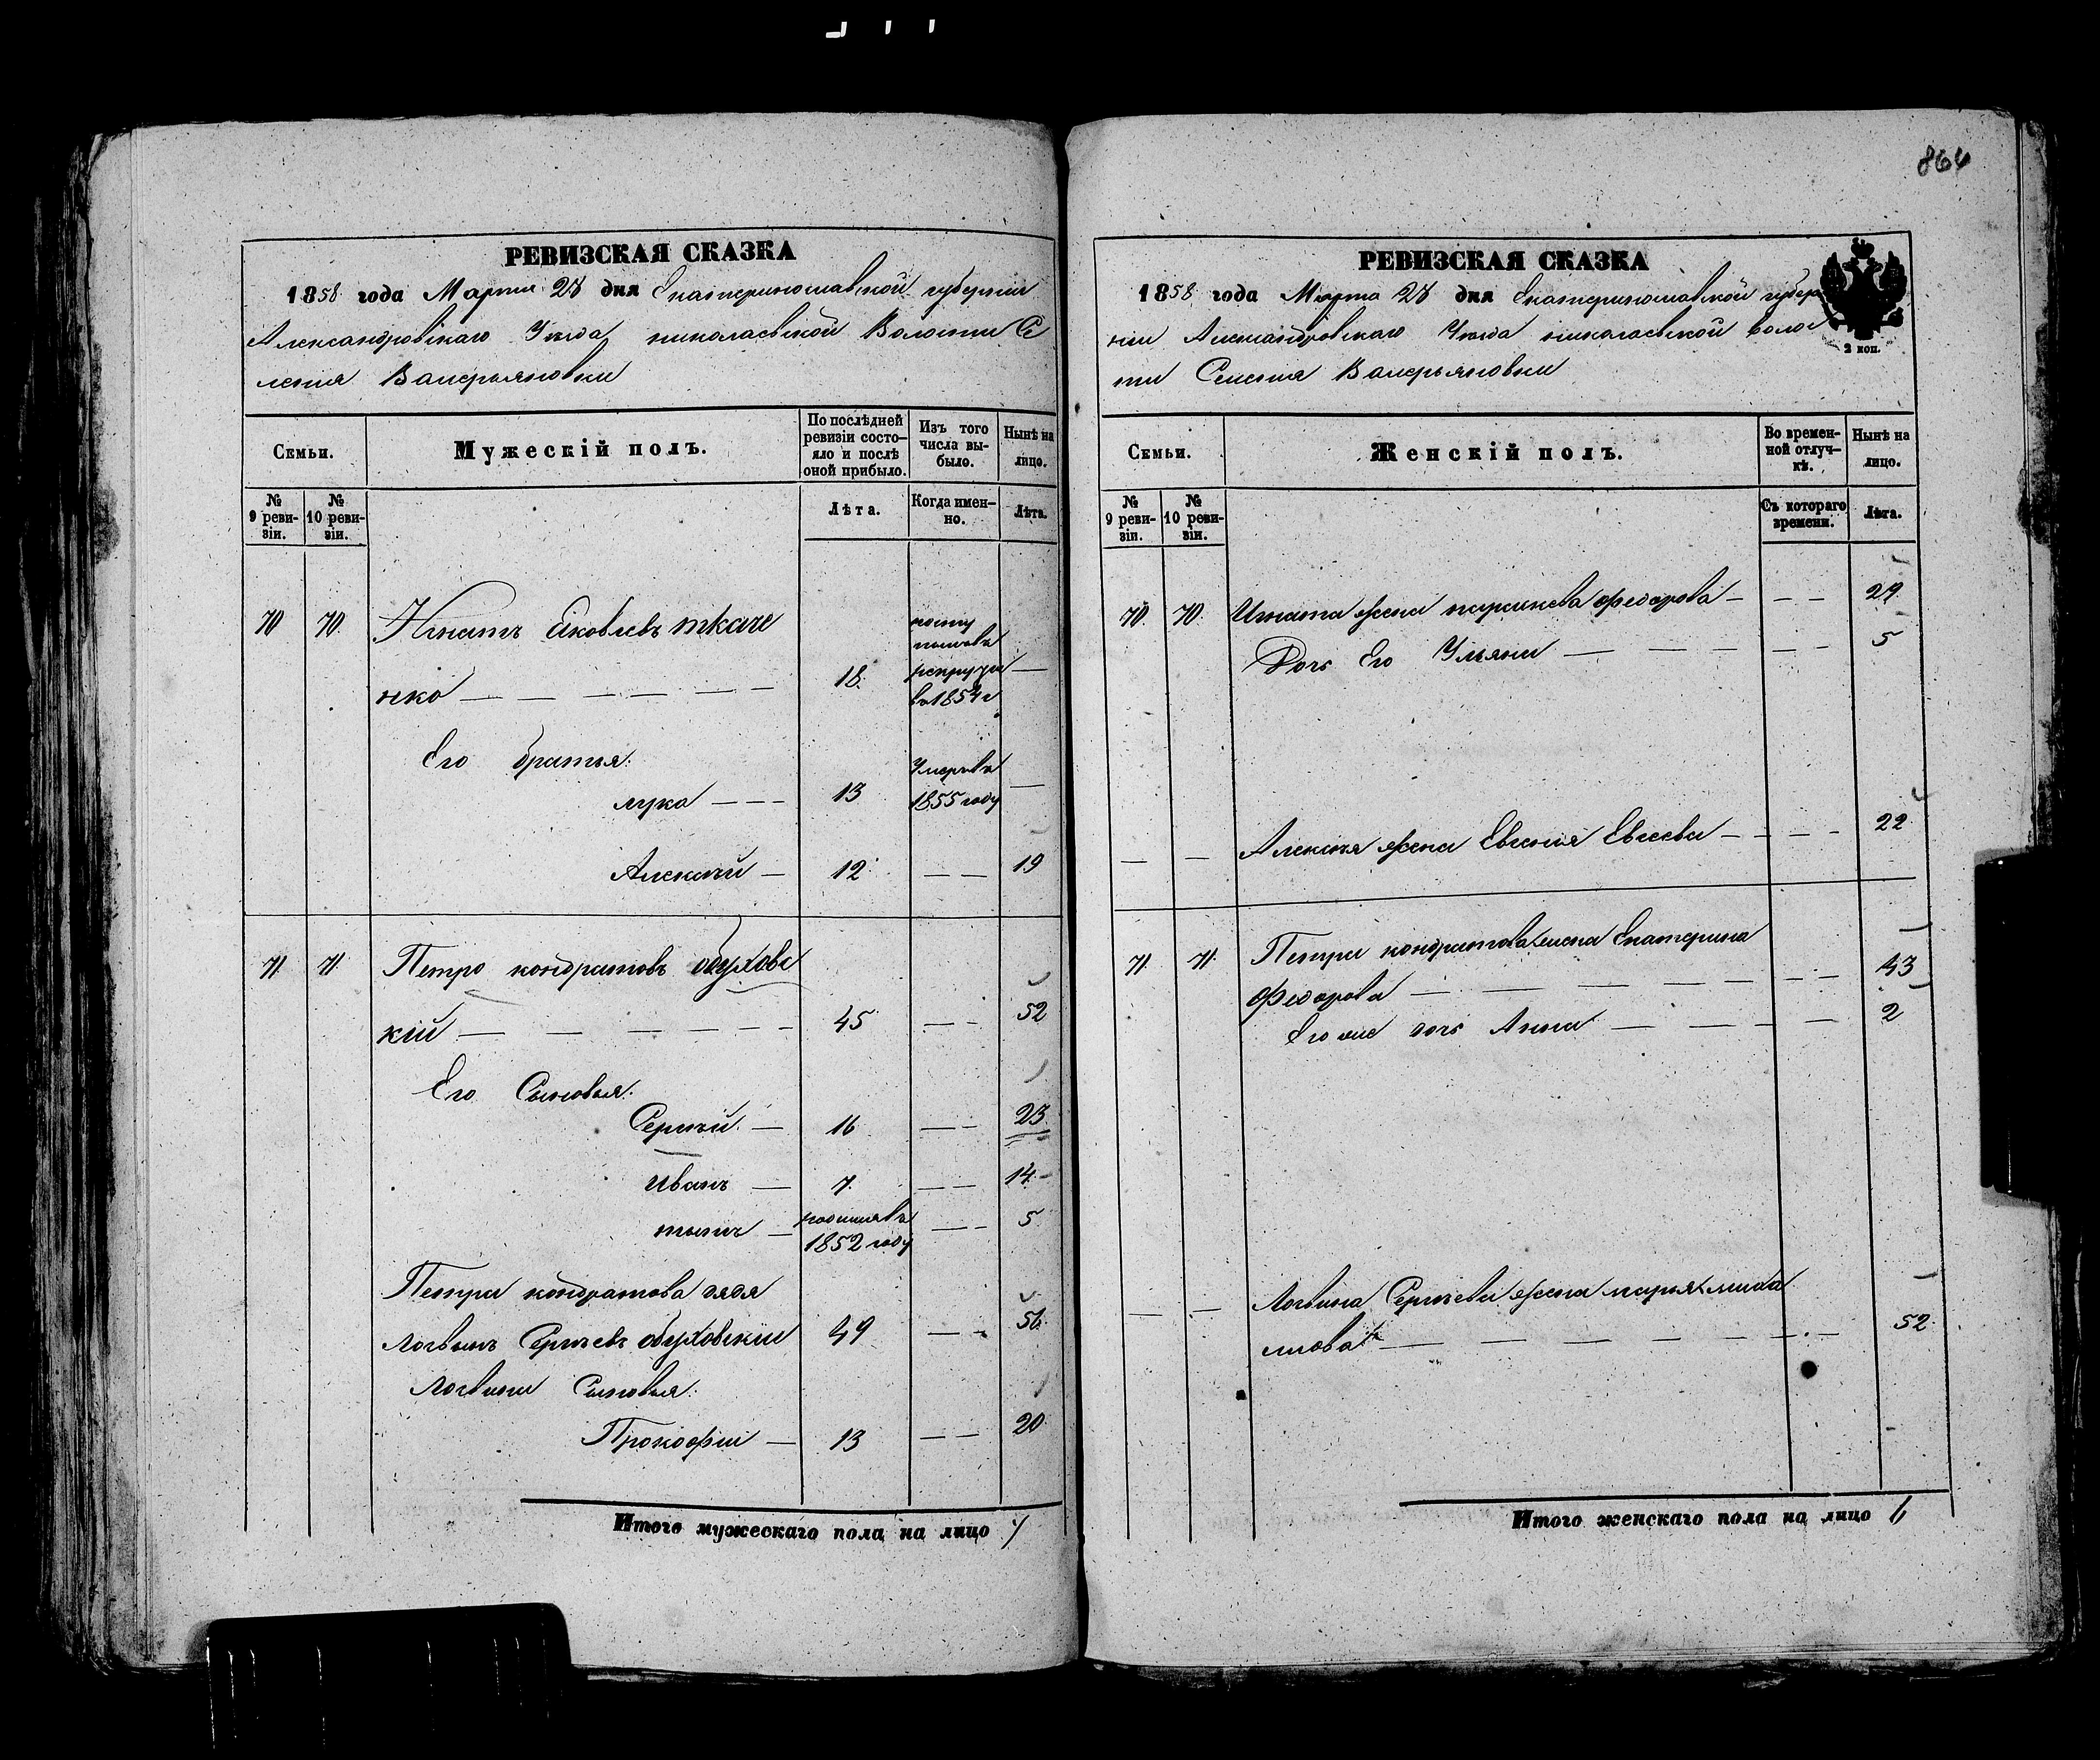 864
РЕВИЗСКАЯ СКАЗКА
1858 года Марта 28 дня Екатеринославской губернии
Александровскаго Уезда николаевской Волости Се
ления Валерьяновки
Семьи.
Мужескій полъ.
По послѣдней ревизіи состо-
яло и послѣ
оной прибыло.
Изъ того
числа вы-
было.
Нынѣ на
лицо.
№
9 реви-
зіи.
№
10 реви-
зіи.
Лѣта.
Когда имен-
но.
Лѣта.
70 70. Игнатъ Яковлевъ ткаче
нко — 18.
рекруты
в 1854 г
—
Его братья:
лука — 13
Умеръ въ
1855 году
—
Алексѣй — 12 — 19
71 71. Петро кондратовъ обуховс
кій — 45 — 52
Его Сыновья:
Сергѣй — 16 — 23
Иванъ — 7. — 14
— родился въ
1852 году
— 5
Петра кондратова дядя
Логвинъ Сергѣевъ обуховскии 49 — 56
Логвина Сыновья:
Прокофии — 13 — 20
Итого мужескаго пола на лицо 7
РЕВИЗСКАЯ СКАЗКА
1858 года Марта 28 дня Екатеринославской губер
нии Александровскаго Уезда николаевской волос
ти Селения Валерьяновки
2 коп.
Семьи.
Женскій полъ.
Во времен-
ной отлуч-
кѣ.
Нынѣ на
лицо.
№
9 реви-
зіи.
№
10 реви-
зіи.
Съ котораго
времени.
Лѣта.
70. 70. Игната жена феодорова — 29
Дочь Его Ульяна — 5
— — Алексѣя жена Евгения Евсеева — 22
71. 71. Петра кондратова жена Екатерина
феодорова — 43
Его же дочь Анна — 2
— — Логвина Сергѣева жена марья миха
илова — 52
Итого женскаго пола на лицо 6